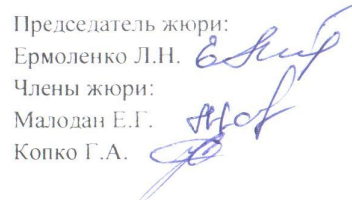 Председатель жюри:
Ермоленко Л.Н.
Члены жюри:
Малодан Е.Г.
Копко Г.А.